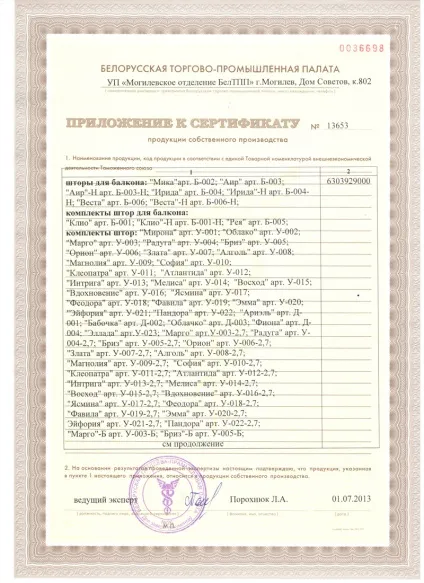 0036698
БЕЛОРУССКАЯ ТОРГОВО-ПРОМЫШЛЕННАЯ ПАЛАТА
УП «Могилевское отделение БелТПП» г.Могилев, Дом Советов, к.802
ПРИЛОЖЕНИЕ К СЕРТИФИКАТУ № 13653
продукции собственного производства
1. Наименование продукции, код продукции в соответствии с единой Товарной номенклатурой внешнеэкономической
деятельности Таможенного союза
1 2
шторы для балкона: "Мика"арт. Б-002; "Аир" арт. Б-003; 6303929000
"Аир"-Н арт. Б-003-Н; "Ирида" арт. Б-004; "Ирида"-Н арт. Б-004-
Н; "Веста" арт. Б-006; "Веста"-Н арт. Б-006-Н;
комплекты штор для балкона:
"Клио" арт. Б-001; "Клио"-Н арт. Б-001-Н; "Рея" арт. Б-005;
комплекты штор: "Мирона" арт. У-001; "Облако" арт. У-002;
"Марго" арт. У-003; "Радуга" арт. У-004; "Бриз" арт. У-005;
"Орион" арт. У-006; "Злата" арт. У-007; "Алголь" арт. У-008;
"Магнолия" арт. У-009; "София" арт. У-010;
"Клеопатра" арт. У-011; "Атлантида" арт. У-012;
"Интрига" арт. У-013; "Мелиса" арт. У-014; "Восход" арт. У-015;
"Вдохновение" арт. У-016; "Ясмина" арт. У-017;
"Феодора" арт. У-018; "Фавила" арт. У-019; "Эмма" арт. У-020;
"Эйфория" арт. У-021; "Пандора" арт. У-022; "Ариэль" арт. Д-
001; "Бабочка" арт. Д-002; "Облачко" арт. Д-003; "Фиона" арт. Д-
004; "Эллада" арт. У-023; "Марго" арт. У-003-2,7; "Радуга" арт. У-
004-2,7; "Бриз" арт. У-005-2,7; "Орион" арт. У-006-2,7;
"Злата" арт. У-007-2,7; "Алголь" арт. У-008-2,7;
"Магнолия" арт. У-009-2,7; "София" арт. У-010-2,7;
"Клеопатра" арт. У-011-2,7; "Атлантида" арт. У-012-2,7;
"Интрига" арт. У-013-2,7; "Мелиса" арт. У-014-2,7;
"Восход" арт. У-015-2,7; "Вдохновение" арт. У-016-2,7;
"Ясмина" арт. У-017-2,7; "Феодора" арт. У-018-2,7;
"Фавила" арт. У-019-2,7; "Эмма" арт. У-020-2,7;
Эйфория" арт. У-021-2,7; "Пандора" арт. У-022-2,7;
"Марго"-Б арт. У-003-Б; "Бриз"-Б арт. У-005-Б;
см продолжение
2. На основании результатов проведенной экспертизы настоящим подтверждаю, что продукция, указанная
в пункте 1 настоящего приложения, относится к продукции собственного производства
ведущий эксперт Порохнюк Л.А. 01.07.2013
М.П.